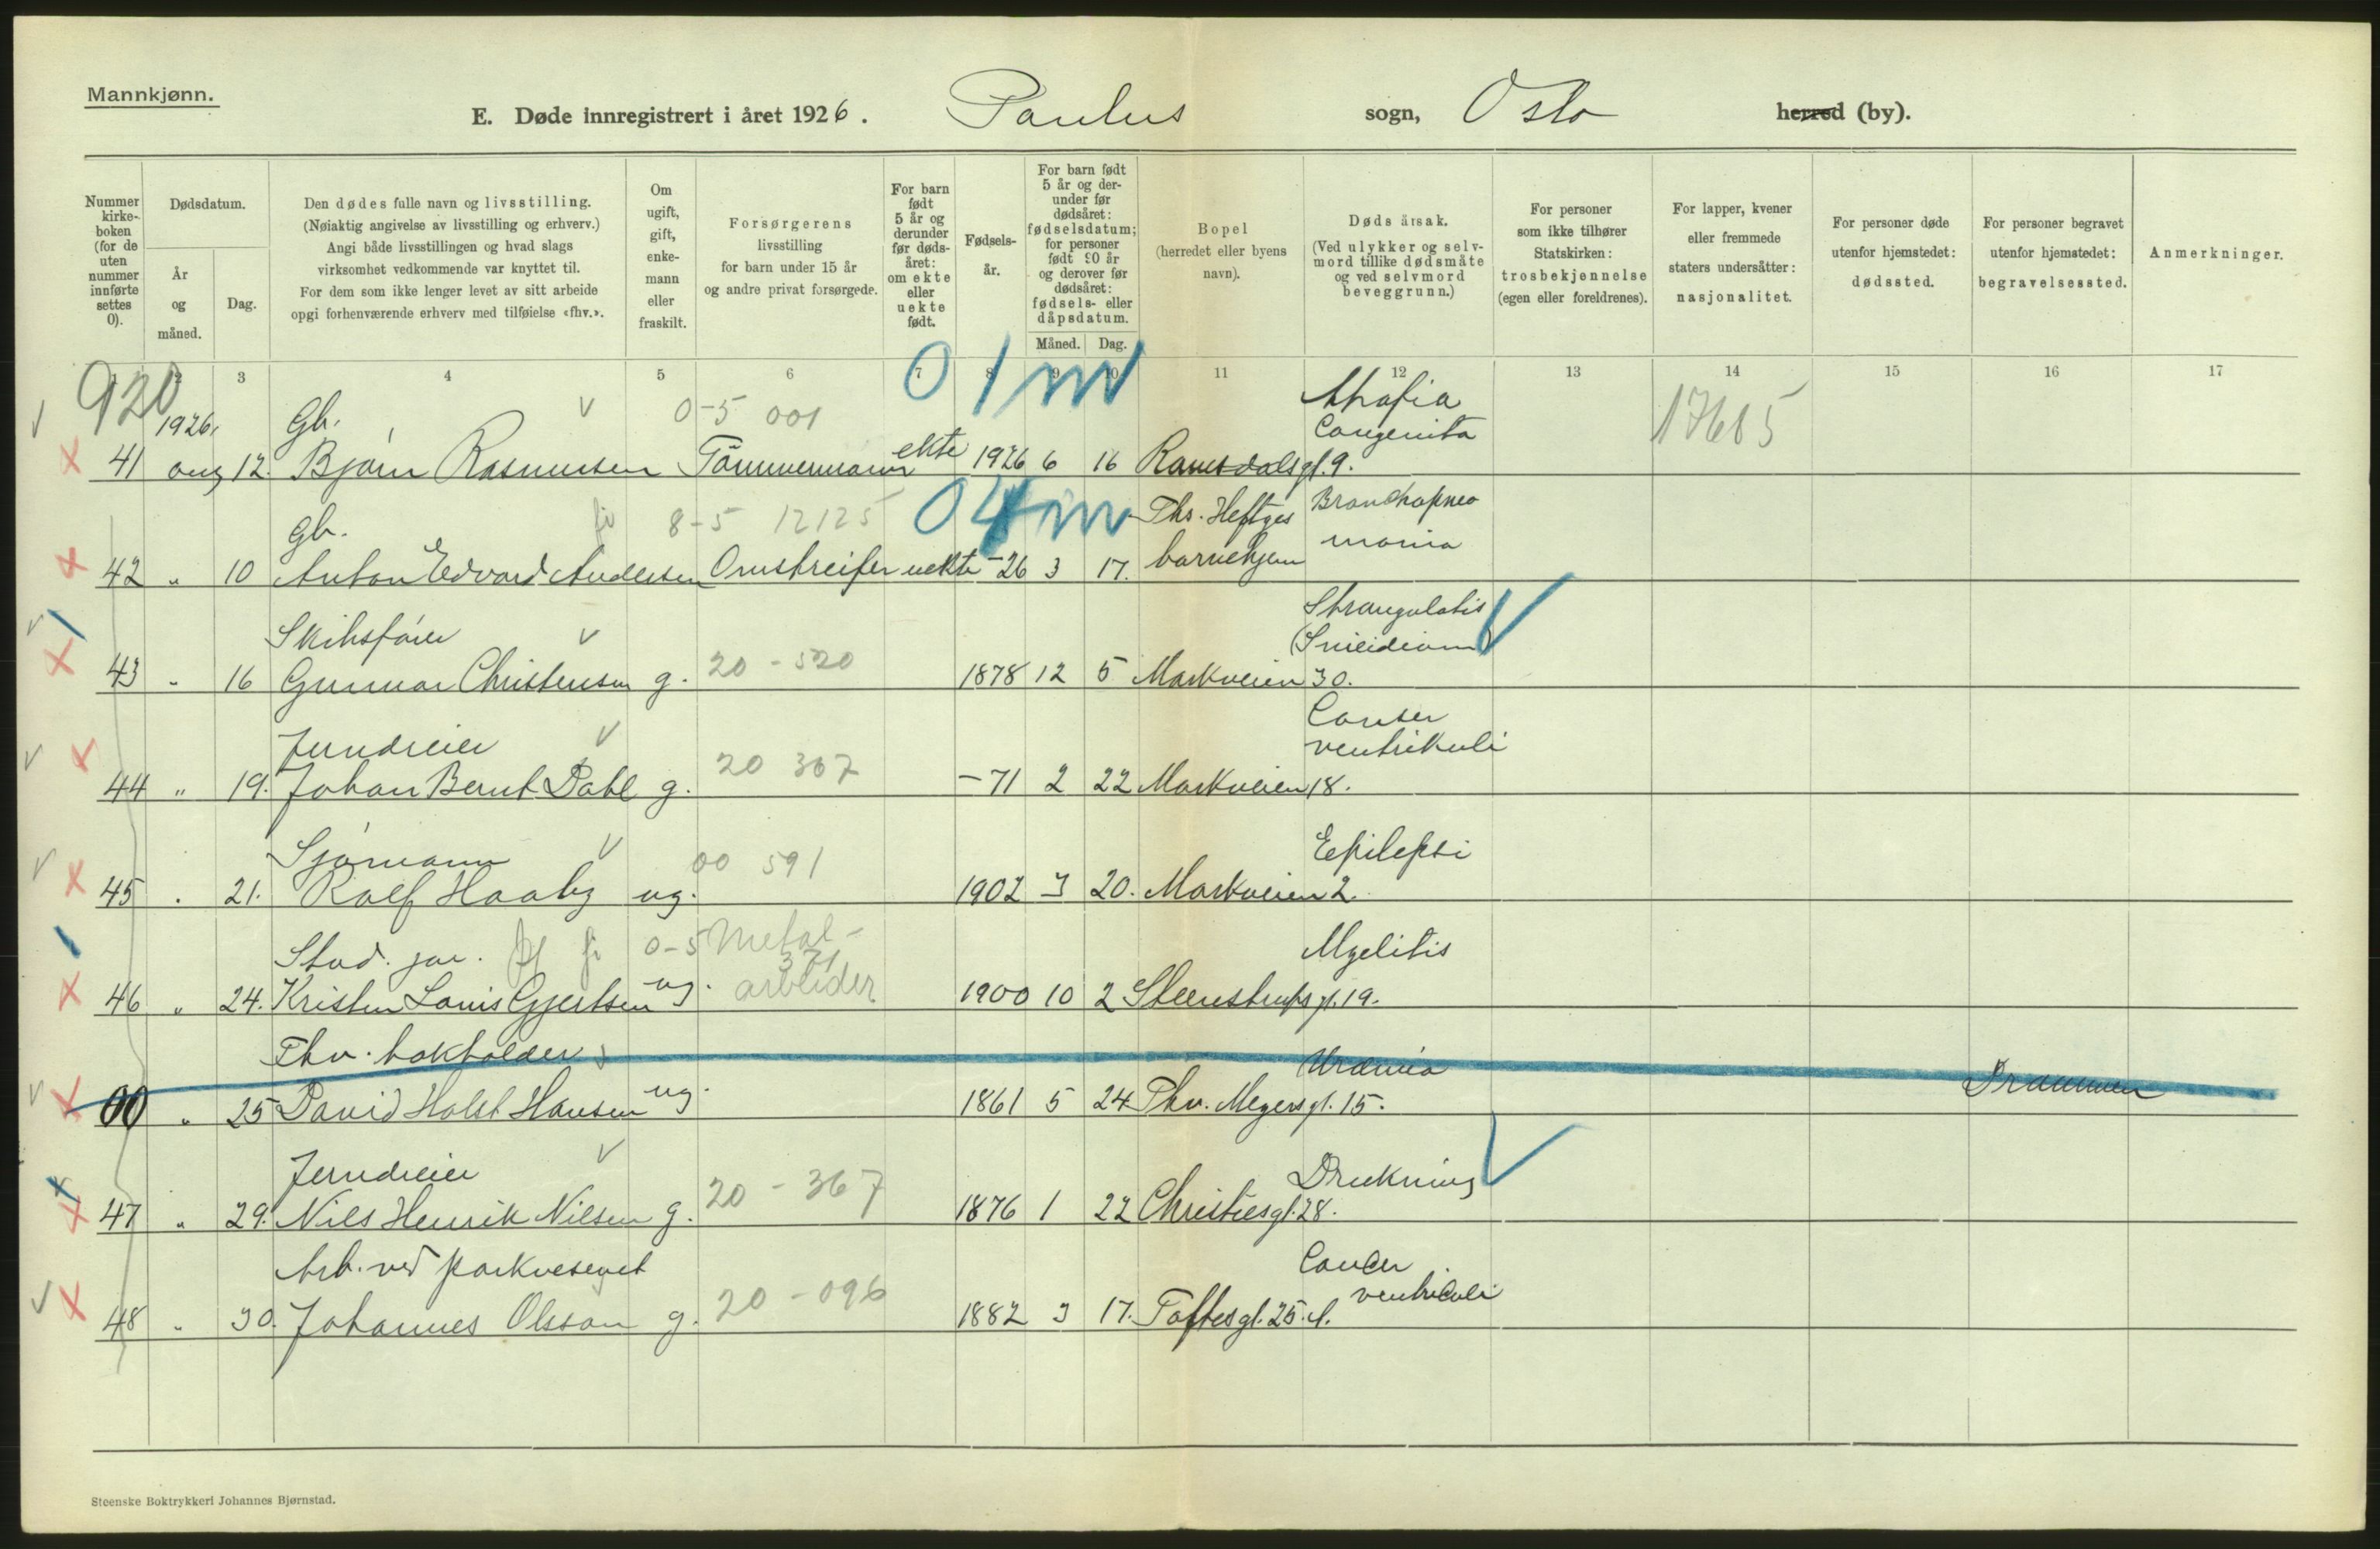 Mannkjønn.
E. Døde innregistrert i året 1926. Paulus sogn, Oslo herred (by).
Nummer kirke-boken (for de uten nummer innførte settes 0).
Dødsdatum.
År og måned.
Dag.
Den dødes fulle navn og livsstilling.
(Nøiaktig angivelse av livsstilling og erhverv.)
Angi både livsstillingen og hvad slags
virksomhet vedkommende var knyttet til.
For dem som ikke lenger levet av sitt arbeide
opgi forhenværende erhverv med tilføielse «fhv.».
Om ugift, gift, enke-mann eller fraskilt.
Forsørgerens
livsstilling
for barn under 15 år
og andre privat forsørgede.
For barn født 5 år og derunder før døds-året: om ekte eller uekte født.
Fødsels-år.
For barn født 5 år og der-under før dødsåret: fødselsdatum; for personer født 90 år og derover før dødsåret: fødsels- eller dåpsdatum.
Måned. Dag.
Bopel
(herredet eller byens navn).
Dødsårsak.
(Ved ulykker og selv-mord tillike dødsmåte og ved selvmord beveggrunn.)
For personer som ikke tilhører Statskirken: trosbekjennelse (egen eller foreldrenes).
For lapper, kvener eller fremmede staters undersåtter: nasjonalitet.
For personer døde utenfor hjemstedet: dødssted.
For personer begravet utenfor hjemstedet: begravelsessted.
Anmerkninger.
3 4 5 6 7 8 9 10 11 12 13 14 15 16 17
920 01m
1926. Gb. 0-5 001 Athrofia Congenita 17615
41 aug 12. Bjørn Rasmussen Tømmermann ekte 1926 6 16 Ramsdalsgt. 9.
Gb. 8-5 12125 04m Ths. Heftyes Bronchopneo
42 " 10 Anton Edvard Andersen Omstreifer uekte -26 3 17. barnehjem monia
Skibsfører Strangulatis (Suicidium)
43 " 16 Gunnar Christensen g. 20-520 1878 12 5 Markveien 30.
Jerndreier Canser ventrikuli
44 " 19. Johan Bernt Dahl g. 20 367 -71 2 22 Markveien 18.
Sjømann 00 591 Eepilepsi
45 " 21. Rolf Haaby ug. 1902 3 20. Markveien 2.
Stud. jur. 0-5 Metal- 371 Myelitis
46 " 24. Kristen Louis Gjertsen ug. arbeider 1900 10 2 Steenstrupsgt. 19.
Fhv. bokholder Urämia Drammen
00 " 25 David Holst Hansen ug. 1861 5 24 Thv. Meyersgt. 15.
Jerndreier Drukning
47 " 29. Nils Henrik Nilsen g. 20-367 1876 1 22 Christiesgt. 28.
Arb. ved parkvesenet Cancer ventriculi
48 " 30. Johannes Olsson g. 20-096 1882 3 17. Toftesgt. 25.
Steenske Boktrykkeri Johannes Bjørnstad.